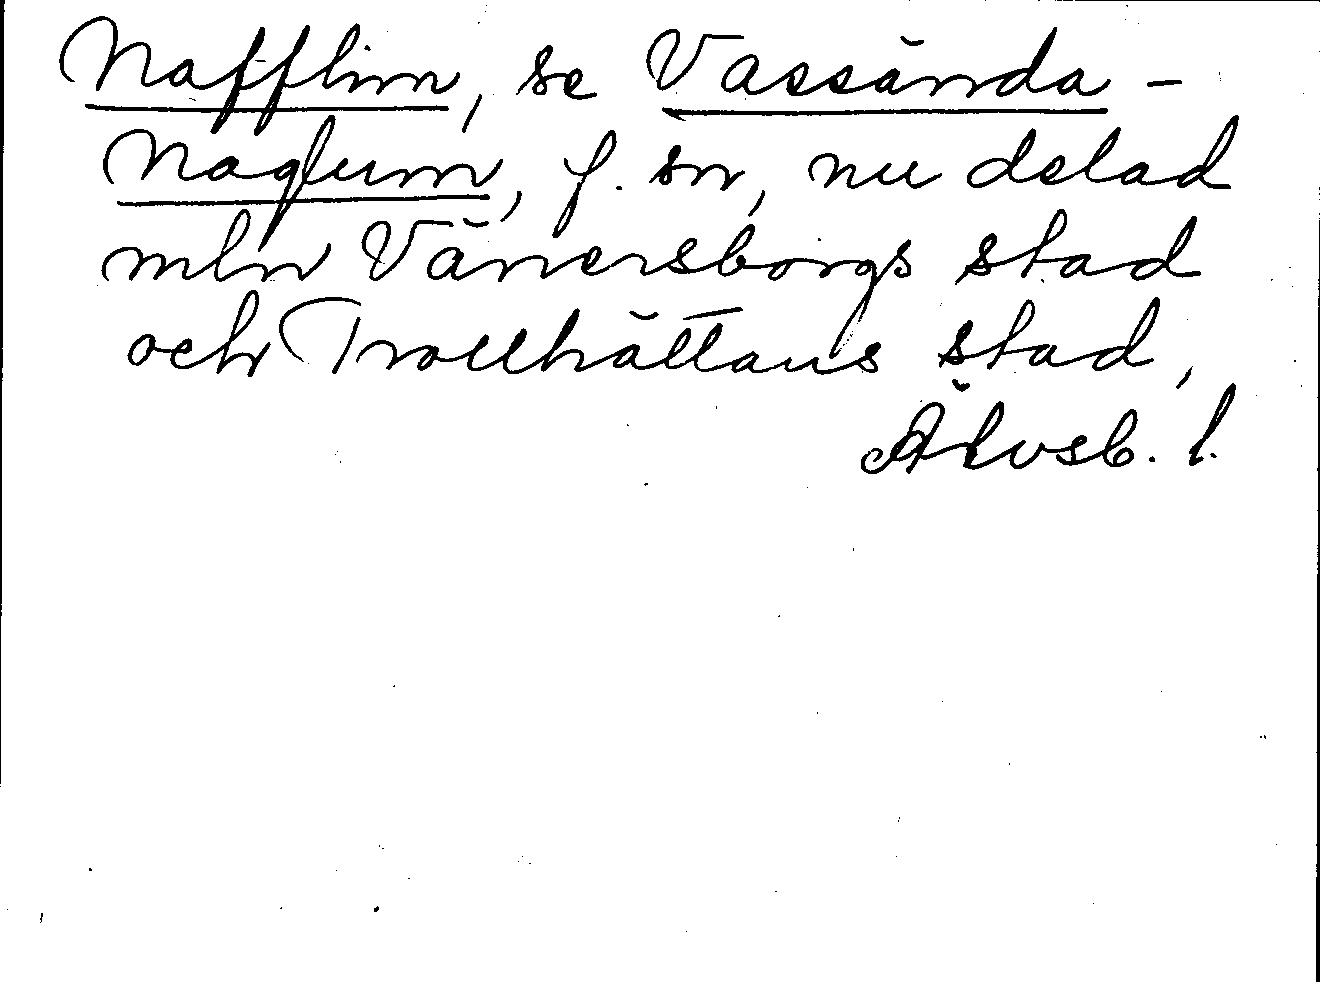 Nafflim, se Vassända-
Naglum, f. sn, nu delad
mln Vänersborgs stad
och Trollhättans stad,
Älvsb. l.